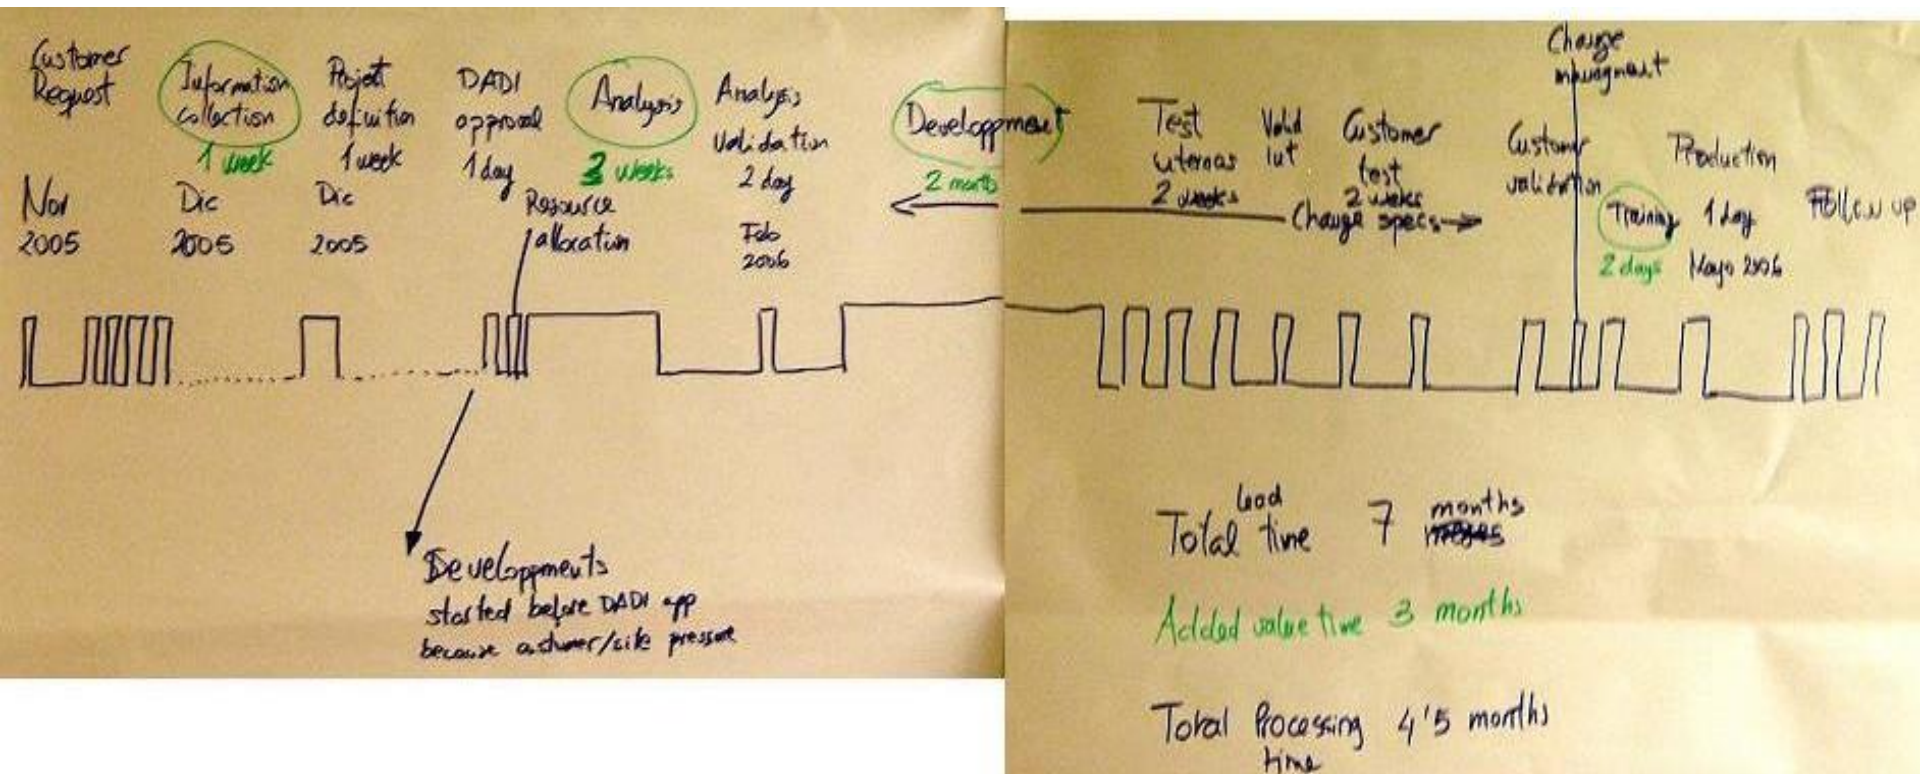 Customer
Request
Nov
2005
Information
collection
1 week
Dic
2005
Projet
definition
1 week
Dic
2005
DADI
approval
1 day
Resource
allocation
Analysis
3 weeks
Analysis
Validation
2 day
Feb
2006
Developpment
2 months
Test
internas
2 weeks
Valid
int
Customer
test
2 weeks
Change specs
Customer
validation
Change
Training
2 days
Production
1 day
Mayo 2006
Follow up
Developpments
started before DADI app
because customer/site pressure
Total lead time 7 months
Added value time 3 months
Total Processing 4'5 months
time